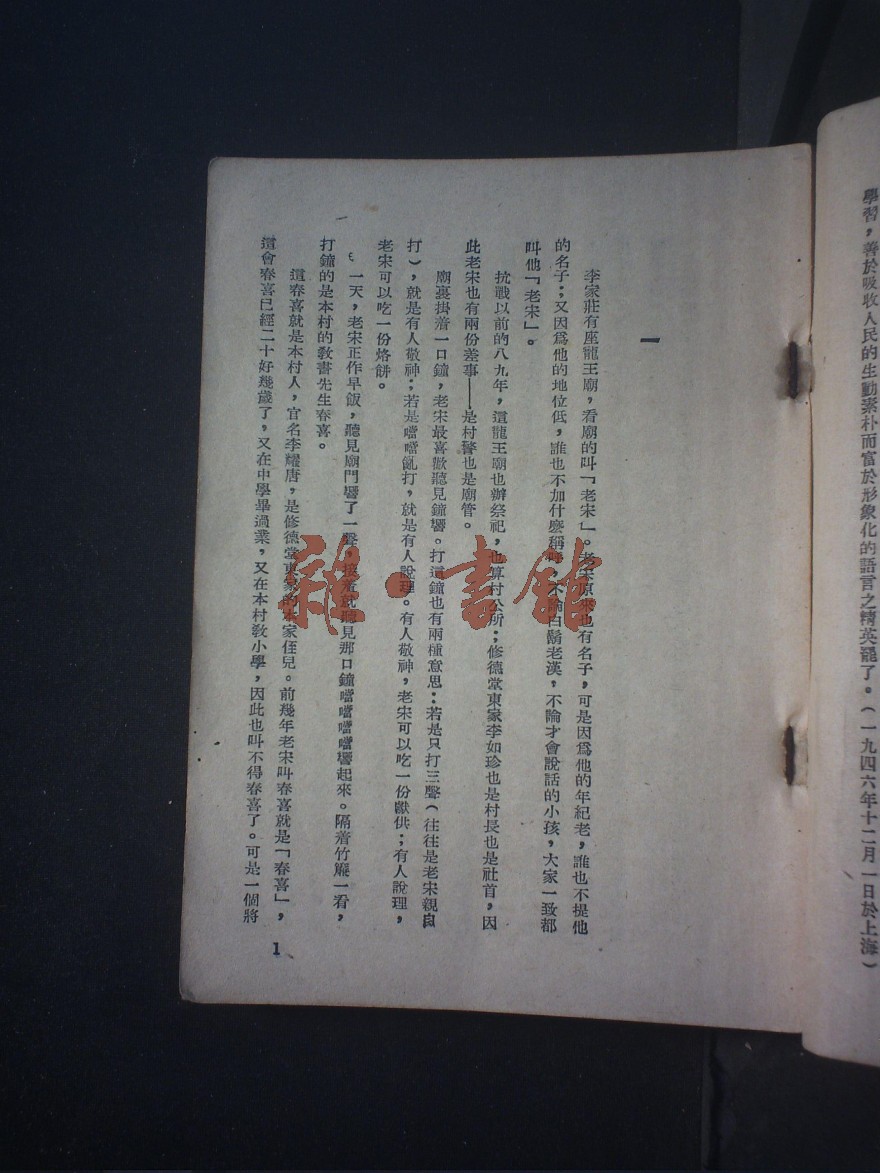 學習，善於吸收人民的生動素朴而富於形象化的語言之精英罷了。（一九四六年十二月一日於上海）
一
李家莊有座龍王廟，看廟的叫「老宋」。老宋原來也有名子，可是因爲他的年紀老，誰也不提他
的名子；又因爲他的地位低，誰也不加什麽稱呼，不論白鬍老漢，不論才會說話的小孩，大家一致都
叫他「老宋」。
抗戰以前的八九年，這龍王廟也辦祭祀，也算村公所；修德堂東家李如珍也是村長也是社首，因
此老宋也有兩份差事——是村警也是廟管。
廟裏掛着一口鐘，老宋最喜歡聽見鐘響。打這鐘也有兩種意思：若是只打三聲（往往是老宋親自
打），就是有人敬神；若是噹噹亂打，就是有人說理。有人敬神，老宋可以吃一份獻供；有人說理，
老宋可以吃一份烙餅。
一天，老宋正作早飯，聽見廟門響了一聲，接着就聽見那口鐘噹噹噹噹響起來。隔着竹簾一看，
打鐘的是本村的敎書先生春喜。
這春喜就是本村人，官名李耀唐，是修德堂東家的本家侄兒。前幾年老宋叫春喜就是「春喜」，
這會春喜已經二十好幾歲了，又在中學畢過業，又在本村敎小學，因此也叫不得春喜了。可是一個將
1
雜·書館